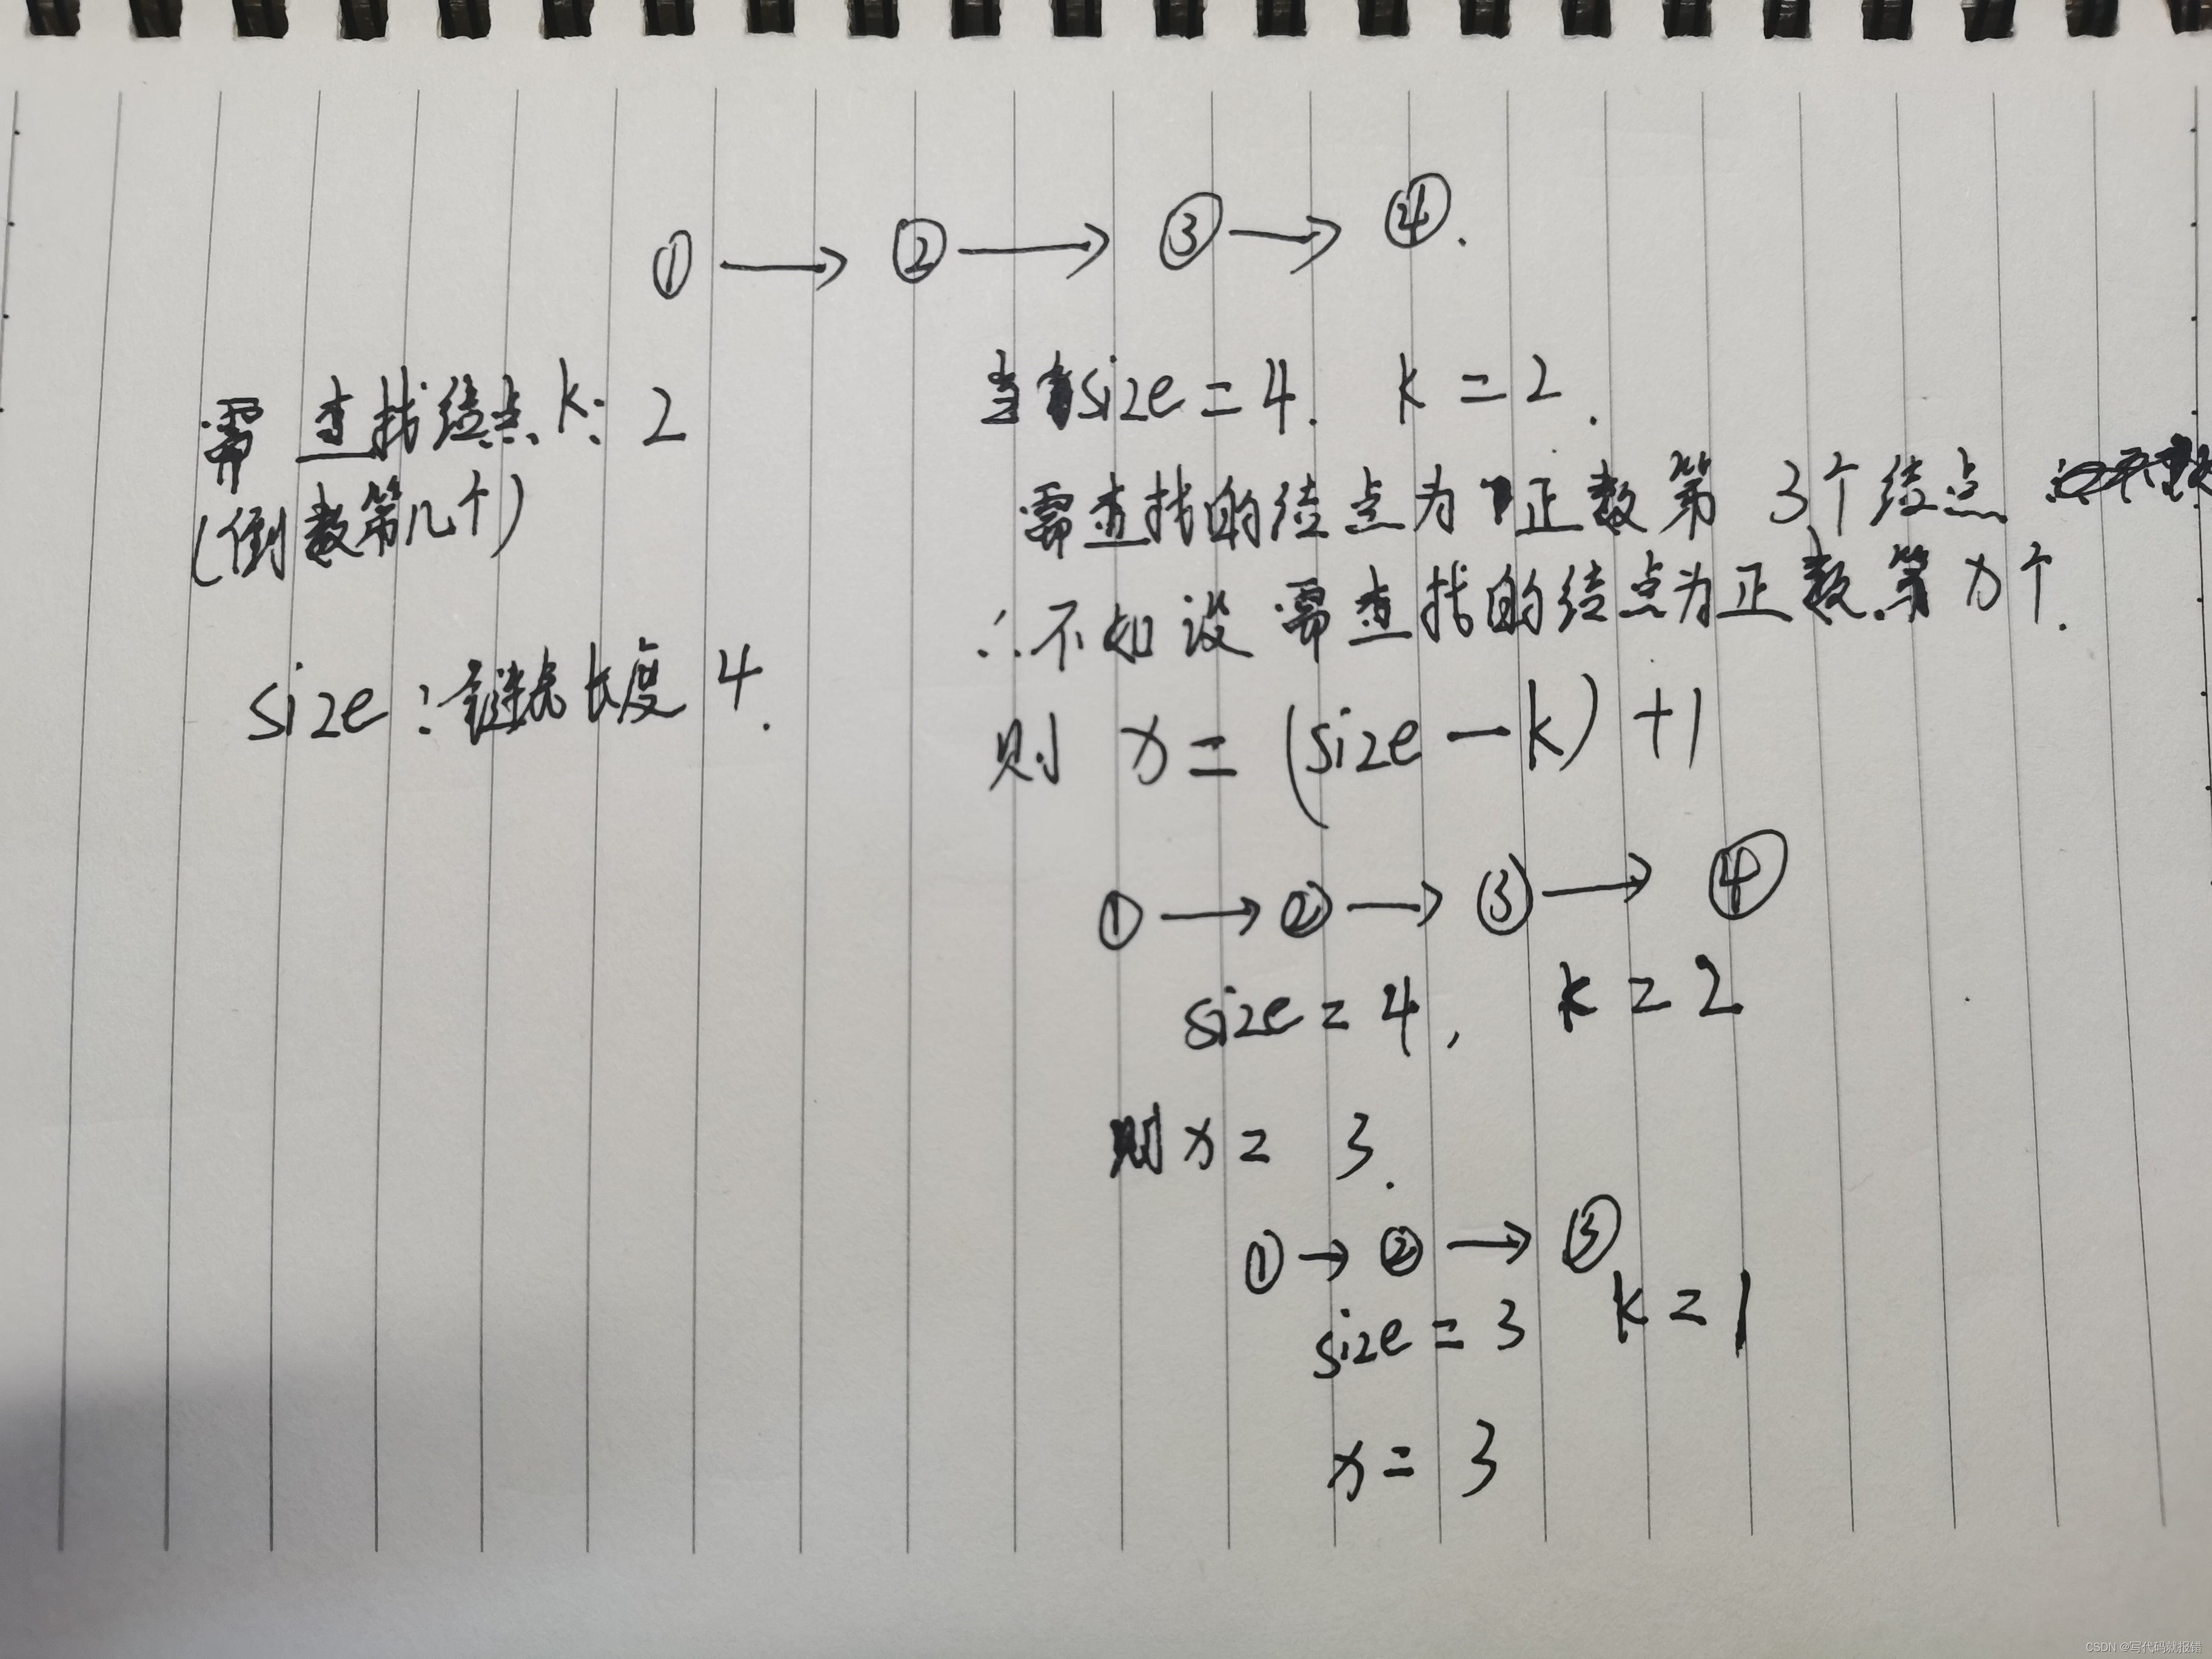 ① → ② → ③ → ④.
需查找结点k: 2
(倒数第几个)
size: 链表长度 4.
当size = 4. k = 2.
需查找的结点为正数第 3个结点
∴不如设需查找的结点为正数第x个.
则 x = (size - k) + 1
① → ② → ③ → ④
size = 4, k = 2
则 x = 3.
① → ② → ③
size = 3 k = 1
x = 3
CSDN @写代码就报错